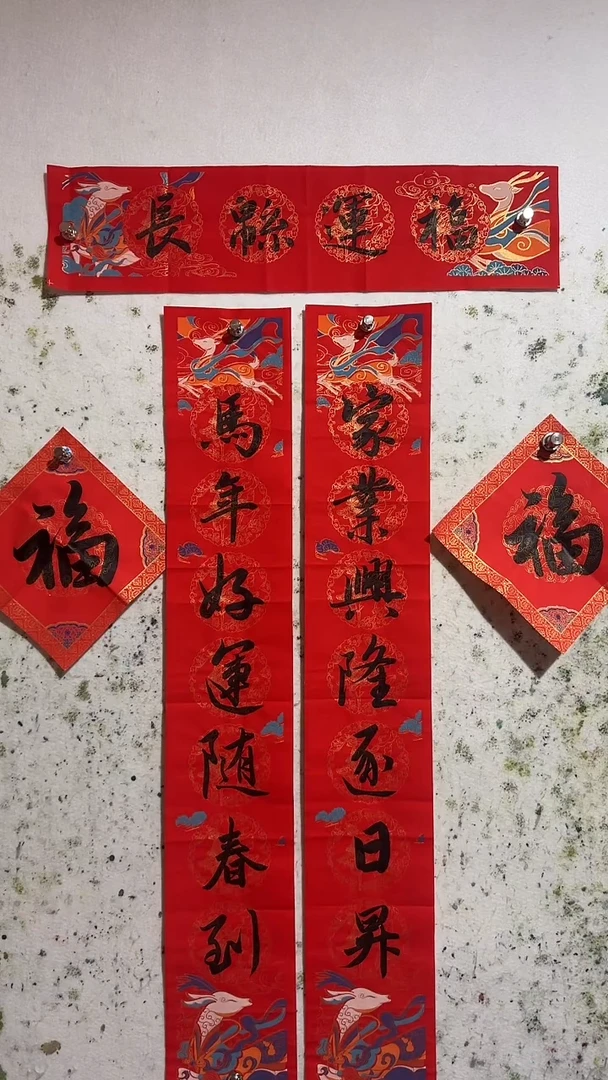 福運緜長
家業興隆逐日昇
馬年好運随春到
福
福